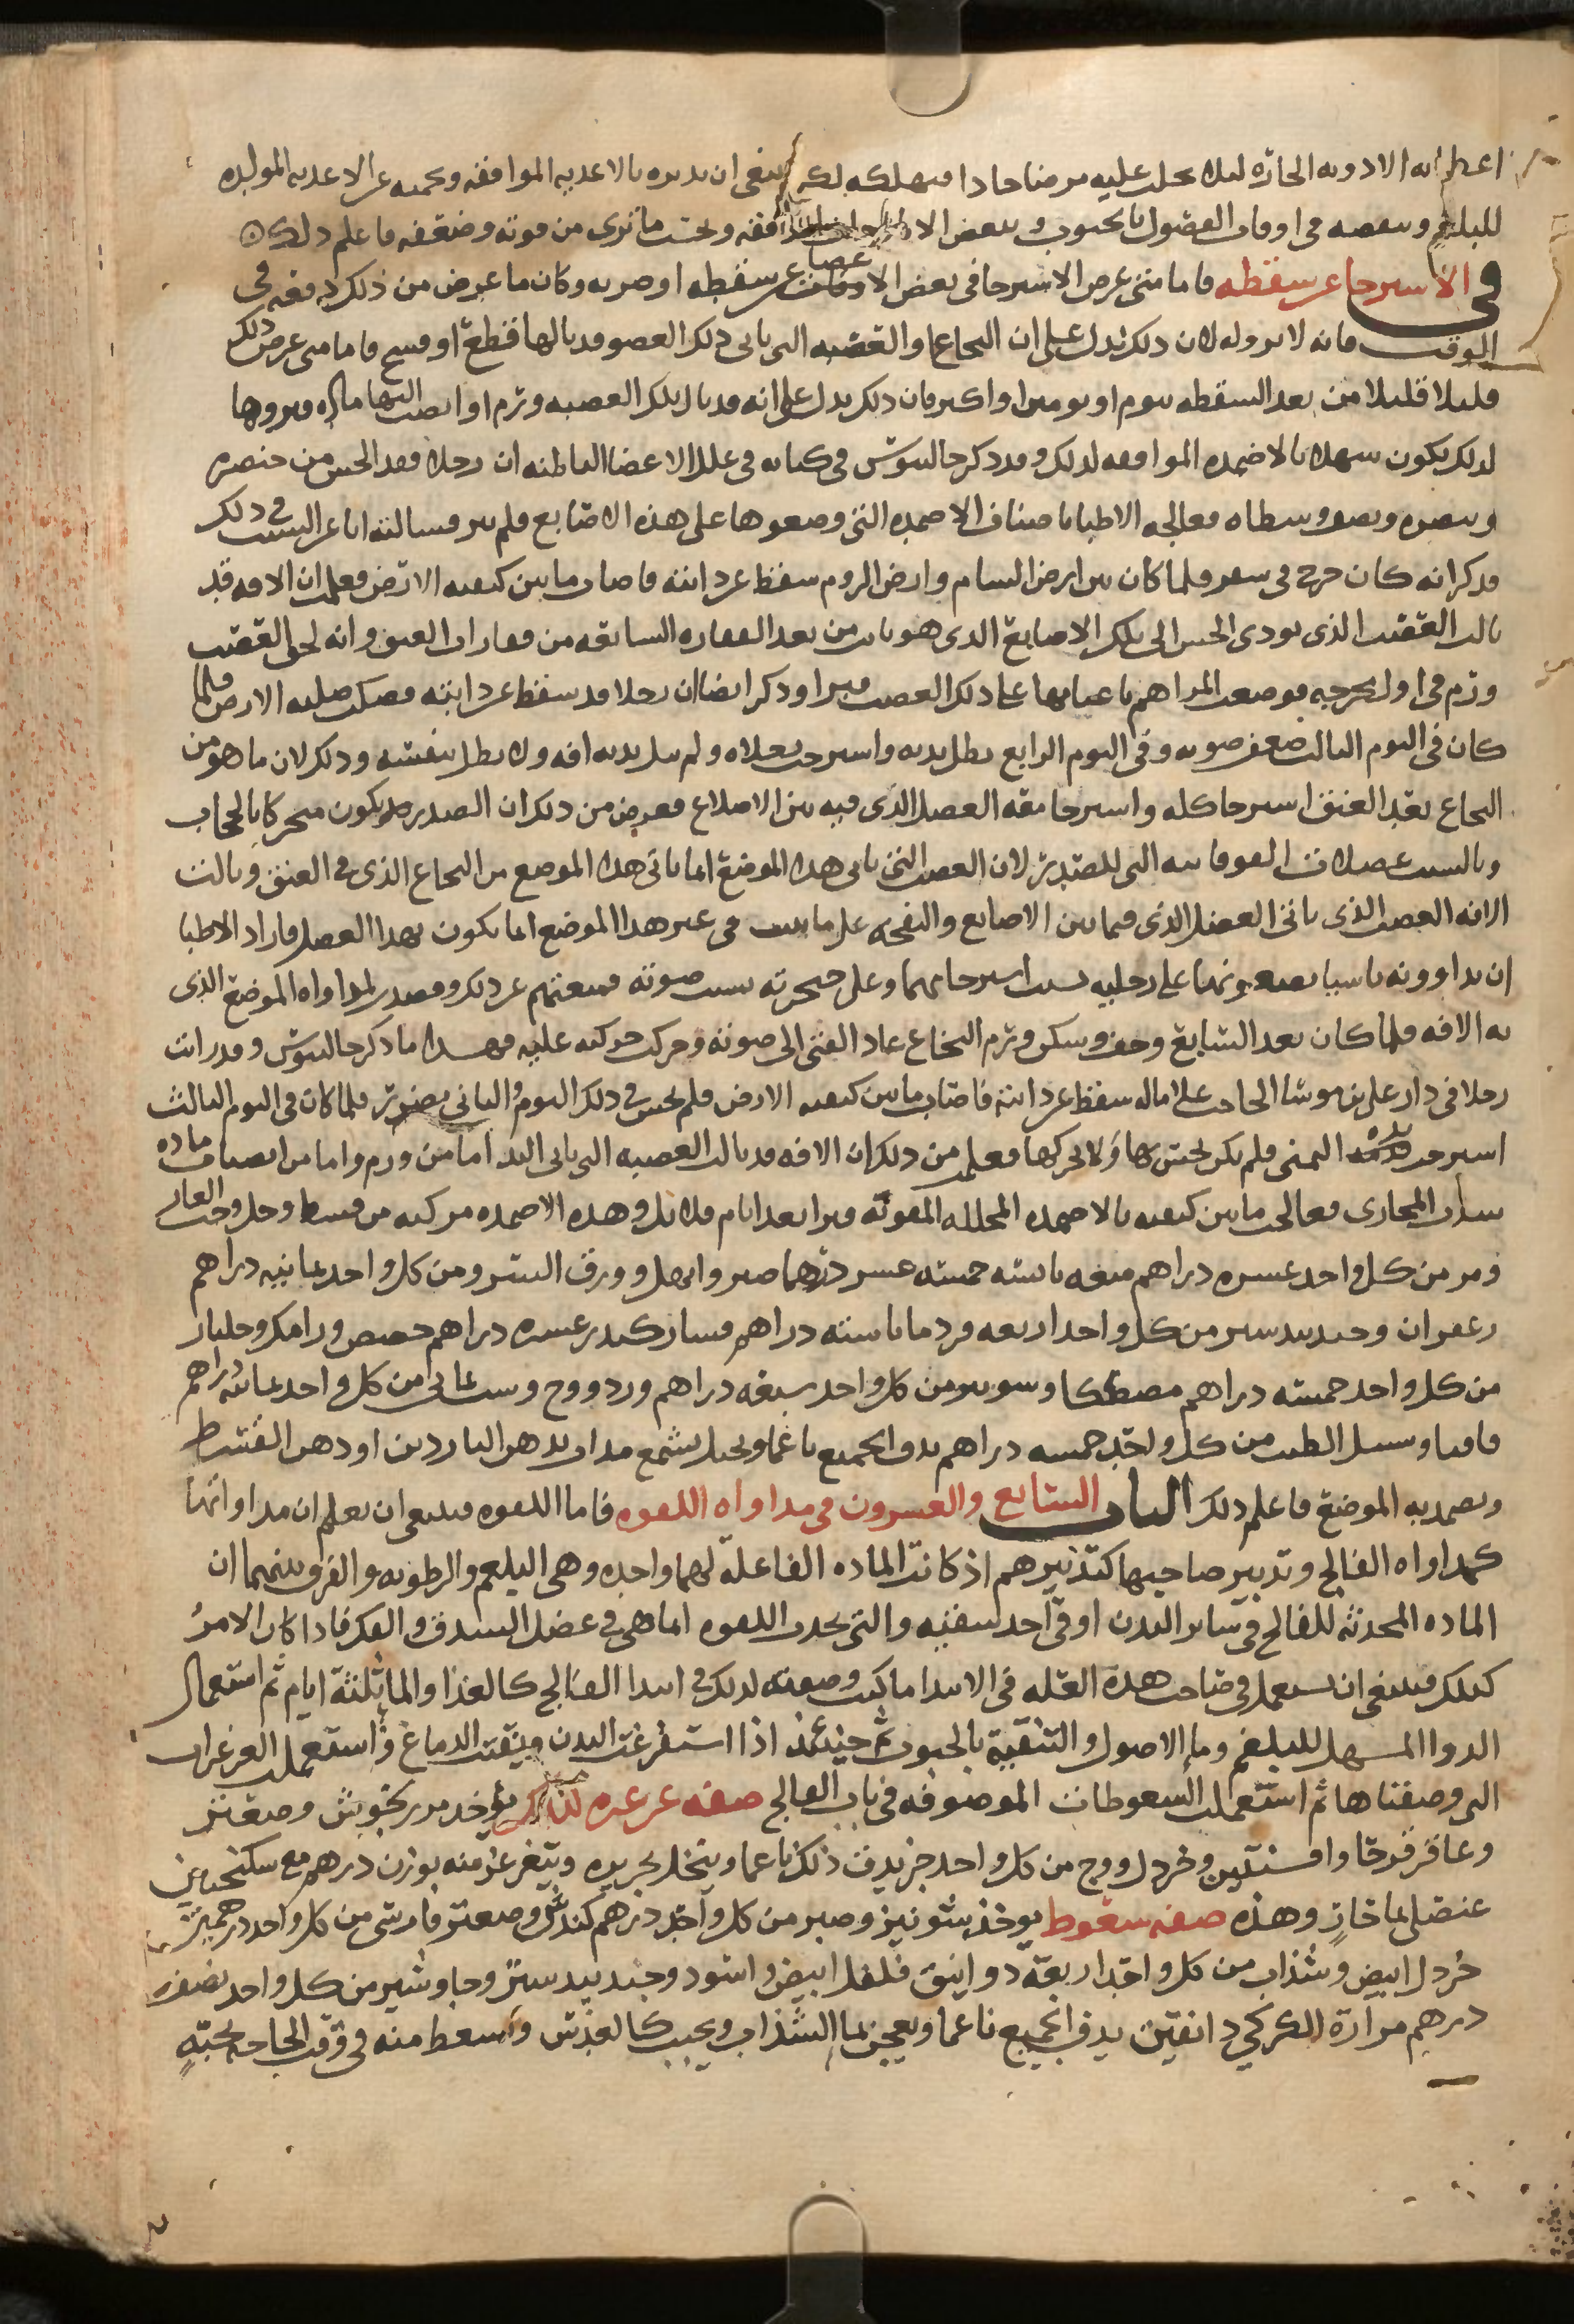 اعطائه الادويه الحاره ليلا يجلب عليه مرضا حادا فيهلكه لكن ينبغى ان يدبره بالاغذيه الموافقه ويحميه عن الاغذيه المولده
للبلغم وينفضه فى اوقات الفضول بالحبوب وببعض الموافقه وبحسب ما ترى من قوته وضعفه فاعلم ذلك
فى الاسترخا عن سقطه فاما متى عرض الاسترخا فى بعض الاعضا عن سقطه او ضربه وكان ما عرض من ذلك دفعه فى
الوقت فانه لا برو له لان ذلك يدل على ان النخاع او العصبه التى تاتى ذلك العضو قد نالها قطع او فسخ فاما متى عرض ذلك
قليلا قليلا من بعد السقطه بيوم او يومين او اكثر فان ذلك يدل على انه قد نال تلك العصبه ورم او انصبت اليها ماده وبروها
لذلك يكون سهلا بالاضمده الموافقه لذلك وقد ذكر جالينوس فى كتابه فى علل الاعضا الباطنه ان رجلا فقد الحس من خنصره
وبنصره ونصف وسطاه فعالجه الاطبا باصناف الاضمده التى وضعوها على هذه الاصابع فلم يبر فسالته انا عن السبب فى ذلك
فذكر انه كان خرج فى سفر فلما كان بين ارض الشام وارض الروم سقط عن دابته فاصاب ما بين كتفيه الارض فعلمت ان الافه قد
نالت العصب الذى يودى الحس الى تلك الاصابع الذى هو نابت من بعد الفقاره السابعه من فقارات العنق وانه لحق العصب
ورم فى اول خرجه فوضعت المراهم باعيانها على ذلك العصب فبرا وذكر ايضا ان رجلا قد سقط عن دابته فصكت صلبه الارض فلما
كان فى اليوم الثالث ضعف صوته وفى اليوم الرابع بطل بدنه واسترخت رجلاه ولم ينل يديه افه ولا بطل نفسه وذلك لان ما هو من
النخاع بعد العنق استرخا كله واسترخا معه العضل الذى فيه بين الاضلاع فعرض من ذلك ان الصدر يكون متحركا بالحجاب
وبالست عضلات الفوقانيه التى للصدر لان العصب التى تاتى هذا الموضع انما ياتى هذا الموضع من النخاع الذى فى العنق ونالت
الافه العصب الذى ياتى العضل الذى فيما بين الاضلاع والنفخه على ما بينت فى غير هذا الموضع انما يكون بهذا العضل فاراد الاطبا
ان يداوونه باشيا يضعونها على رجليه بسبب استرخايهما وعلى حنجرته بسبب صوته فمنعتهم عن ذلك وقصدت لمداواه الموضع الذى
به الافه فلما كان بعد السابع وخف وسكن ورم النخاع عاد الفتى الى صوته وحركت حركته عليه فهذا ما ذكر جالينوس وقد رايت
رجلا فى دار على بن موسا الحاجب على اماله سقط عن دابته فاصاب ما بين كتفيه الارض فلم يحس فى ذلك اليوم والثانى بضرر فلما كان فى اليوم الثالث
استرخت يده اليمنى فلم يكن يحس بها ولا يحركها فعلمت من ذلك ان الافه قد نالت العصبه التى تاتى اليد اما من ورم واما من انصباب ماده
سدت المجارى فعالجت ما بين كتفيه بالاضمده المحلله المقويه فبرا بعد ايام قلايل وهذه الاضمده مركبه من قسط وخل وحب الغار
ومر من كل واحد عشره دراهم ميعه يابسه خمسه عشر درهما صبر وابهل وورق السرو من كل واحد ثمانيه دراهم
زعفران وجندبيدستر من كل واحد اربعه قردمانا سته دراهم فساز كندر عشره دراهم حضض ورامك وجلنار
من كل واحد خمسه دراهم مصطكا وسوس من كل واحد سبعه دراهم ورد ووج وسب يمانى من كل واحد ثمانيه دراهم
قاقيا وسنبل الطيب من كل واحد خمسه دراهم يدق الجميع ناعما ويحل بشمع مذاب بدهن الناردين او دهن القسط
ويضمد به الموضع فاعلم ذلك الباب السابع والعشرون فى مداواه اللقوه فاما اللقوه فينبغى ان تعلم ان مداواتها
كمداواه الفالج وتدبير صاحبها كتدبيرهم اذ كانت الماده الفاعله لهما واحده وهى البلغم والرطوبه والفرق بينهما ان
الماده المحدثه للفالج فى ساير البدن او فى احد شقيه والتى تحدث اللقوه انما هى فى عضل الشدق والفك فاذا كان الامر
كذلك فينبغى ان تستعمل فى صاحب هذه العله فى الابتدا ما كنت وصفته لك فى ابتدا الفالج كالغذا والما ثلثة ايام ثم استعمال
الدوا المسهل للبلغم وما الاصول والتنقيه بالحبوب ثم حينئذ اذا استفرغت البدن ونقيت الدماغ فاستعملت الغرغرات
التى وصفناها ثم استعملت السعوطات الموصوفه فى باب الفالج صفه غرغره لذلك يوخذ مرزنجوش وصعتر
وعاقرقرحا وافسنتين وخردل ووج من كل واحد جز يدق ذلك ناعما وينخل بحريره ويتغرغر منه بوزن درهم مع سكنجبين
عنصلى بما حار وهذه صفه سعوط يوخذ شونيز وصبر من كل واحد درهم كندس وصعتر فارسى من كل واحد درهمين
خردل ابيض وشذاب من كل واحد اربعة دوانيق فلفل ابيض واسود وجندبيدستر وجاوشير من كل واحد نصف
درهم مرارة الكركي دانقين يدق الجميع ناعما ويعجن بما الشذاب ويحبب كالعدس ويسعط منه فى وقت الحاجه بحبة